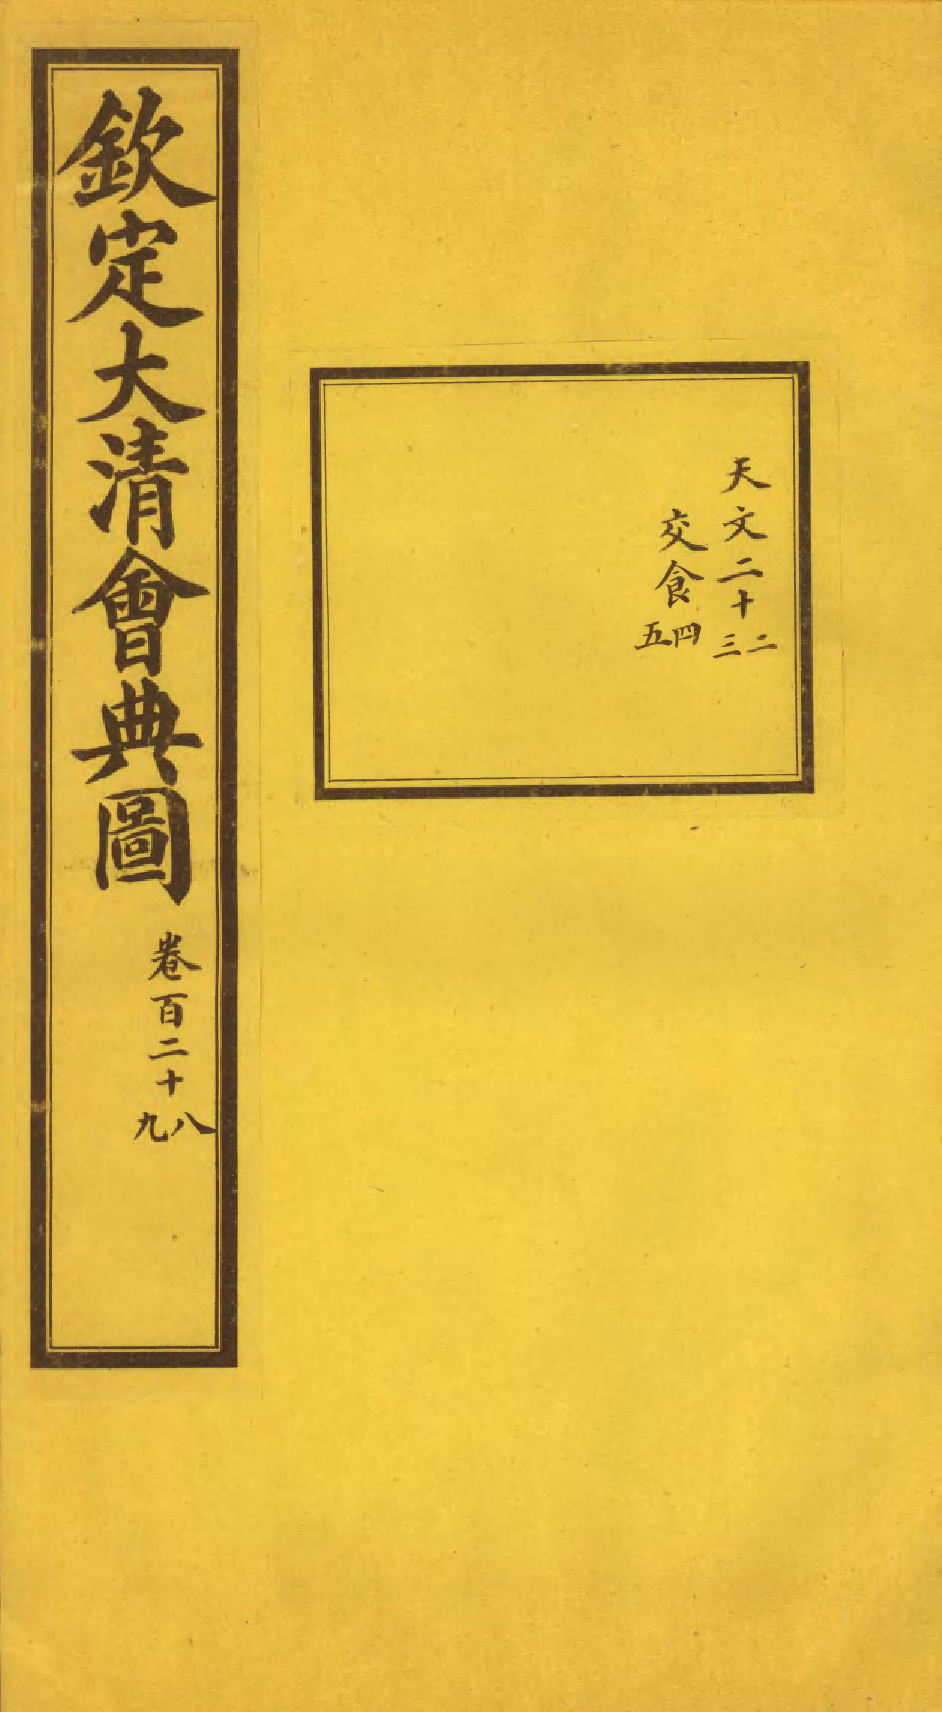 天文二十二三
交食四五
欽定大清會典圖
卷百二十八九